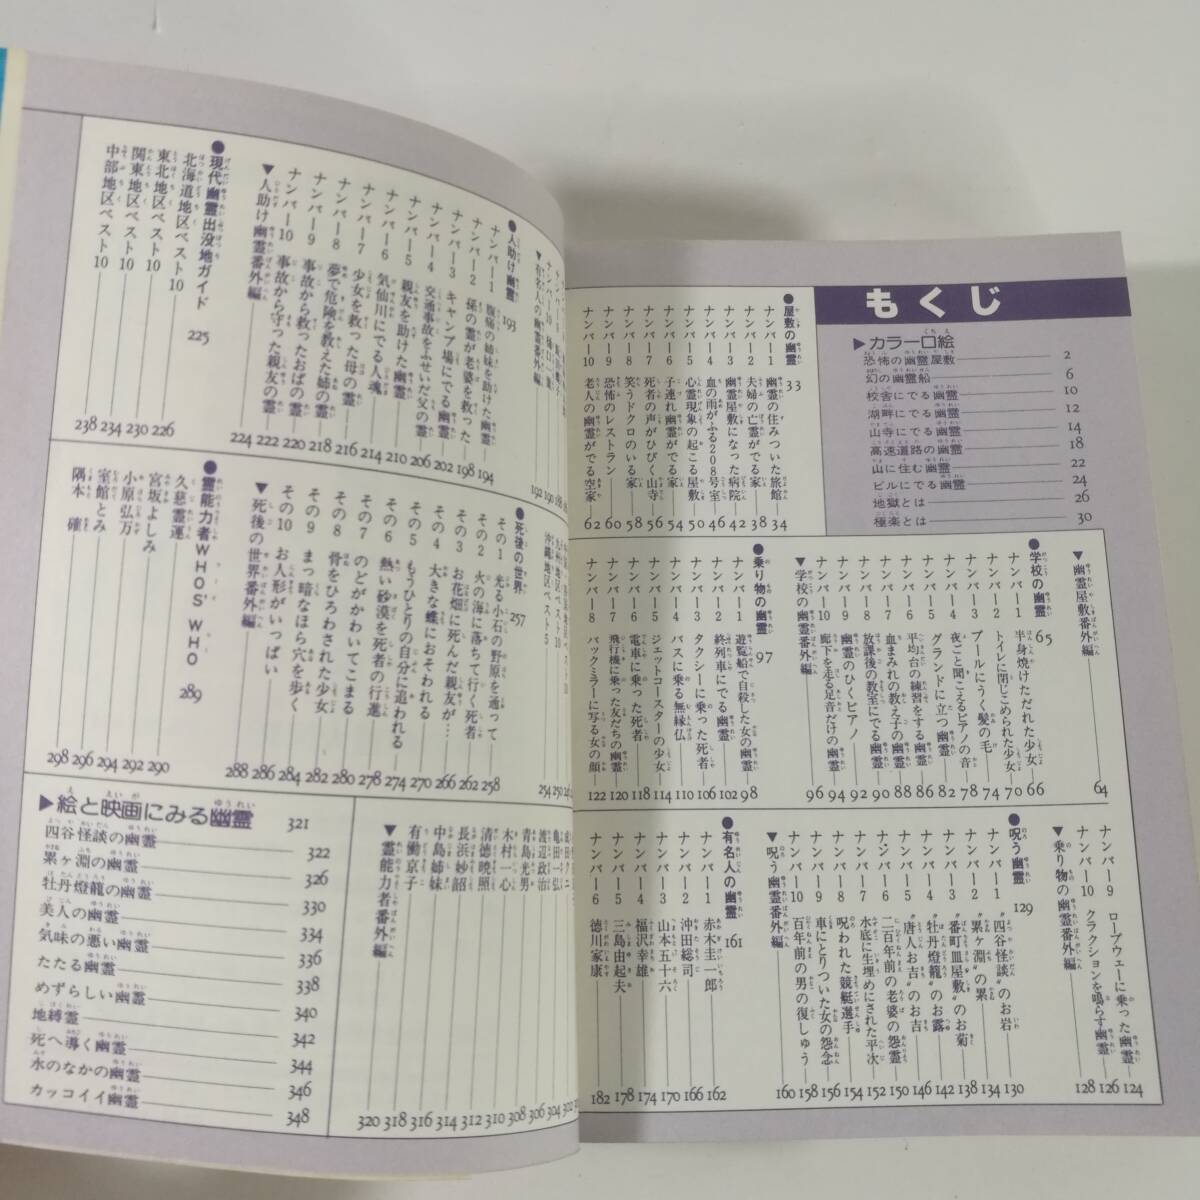 もくじ
▶カラー口絵
恐怖の幽霊屋敷 2
幻の幽霊船 6
校舎にでる幽霊 10
湖畔にでる幽霊 12
山寺にでる幽霊 14
高速道路の幽霊 18
山に住む幽霊 22
ビルにでる幽霊 24
地獄とは 26
極楽とは 30
●屋敷の幽霊 33
ナンバー1 幽霊の住みついた旅館 34
ナンバー2 夫婦の亡霊がでる家 38
ナンバー3 幽霊屋敷になった病院 42
ナンバー4 血の雨がふる208号室 46
ナンバー5 心霊現象の起こる屋敷 50
ナンバー6 子連れ幽霊がでる家 54
ナンバー7 死者の声がひびく山寺 56
ナンバー8 笑うドクロのいる家 58
ナンバー9 恐怖のレストラン 60
ナンバー10 老人の幽霊がでる空家 62
▼幽霊屋敷番外編 64
●学校の幽霊 65
ナンバー1 半身焼けただれた少女 66
ナンバー2 トイレに閉じこめられた少女 70
ナンバー3 プールにうく髪の毛 74
ナンバー4 夜ごと聞こえるピアノの音 78
ナンバー5 グランドに立つ幽霊 82
ナンバー6 平均台の練習をする幽霊 86
ナンバー7 血まみれの教え子の幽霊 88
ナンバー8 放課後の教室にでる幽霊 90
ナンバー9 幽霊のひくピアノ 92
ナンバー10 廊下を走る足音だけの幽霊 94
▼学校の幽霊番外編 96
●乗り物の幽霊 97
ナンバー1 遊覧船で自殺した女の幽霊 98
ナンバー2 終列車にでる幽霊 102
ナンバー3 タクシーに乗った死者 106
ナンバー4 バスに乗る無縁仏 110
ナンバー5 ジェットコースターの少女 114
ナンバー6 電車に乗った死者 116
ナンバー7 飛行機に乗った友だちの幽霊 118
ナンバー8 バックミラーに写る女の顔 122
ナンバー9 ロープウェーに乗った幽霊 124
ナンバー10 クラクションを鳴らす幽霊 126
▼乗り物の幽霊番外編 128
●呪う幽霊 129
ナンバー1 “四谷怪談”のお岩 130
ナンバー2 “累ヶ淵”の累 134
ナンバー3 “番町皿屋敷”のお菊 138
ナンバー4 “牡丹燈籠”のお露 142
ナンバー5 “唐人お吉”のお吉 146
ナンバー6 二百年前の老婆の怨霊 150
ナンバー7 水底に生埋めにされた平次 152
ナンバー8 呪われた競艇選手 154
ナンバー9 車にとりついた女の怨念 156
ナンバー10 百年前の男の復しゅう 158
▼呪う幽霊番外編 160
●有名人の幽霊 161
ナンバー1 赤木圭一郎 162
ナンバー2 沖田総司 166
ナンバー3 山本五十六 170
ナンバー4 福沢幸雄 174
ナンバー5 三島由起夫 178
ナンバー6 徳川家康 182
ナンバー10 樋口一葉 190
▼有名人の幽霊番外編 192
●人助け幽霊 193
ナンバー1 腹痛の姉妹を助けた幽霊 194
ナンバー2 孫の霊が老婆を救った 198
ナンバー3 キャンプ場にでる幽霊 202
ナンバー4 交通事故をふせいだ父の霊 206
ナンバー5 親友を助けた幽霊 210
ナンバー6 気仙川にでる人魂 214
ナンバー7 少女を救った母の霊 216
ナンバー8 夢で危険を教えた姉の霊 218
ナンバー9 事故から救ったおばの霊 220
ナンバー10 事故から守った親友の霊 222
▼人助け幽霊番外編 224
●現代幽霊出没地ガイド 225
北海道地区ベスト10 226
東北地区ベスト10 230
関東地区ベスト10 234
中部地区ベスト10 238
沖縄地区ベスト5 254
●死後の世界 257
その1 光る小石の野原を通って 258
その2 火の海に落ちて行く死者 262
その3 お花畑に死んだ親友が… 266
その4 大きな蝶におそわれる 270
その5 もうひとりの自分に追われる 274
その6 熱い砂漠を死者の行進 278
その7 のどがかわいてこまる 280
その8 骨をひろわされた少女 282
その9 まっ暗なほら穴を歩く 284
その10 お人形がいっぱい 286
▼死後の世界番外編 288
●霊能力者WHO'S WHO 289
久慈霊運 290
宮坂よしみ 292
小原弘万 294
室館とみ 296
隅本確 298
亀田一弘
渡辺政治 304
青島光男 306
木村一心 308
清徳暁照 310
長浜妙韶 312
中島姉妹 314
有働京子 318
▼霊能力者番外編 320
▶絵と映画にみる幽霊 321
四谷怪談の幽霊 322
累ヶ淵の幽霊 326
牡丹燈籠の幽霊 330
美人の幽霊 334
気味の悪い幽霊 336
たたる幽霊 338
めずらしい幽霊 340
地縛霊 342
死へ導く幽霊 344
水のなかの幽霊 346
カッコイイ幽霊 348